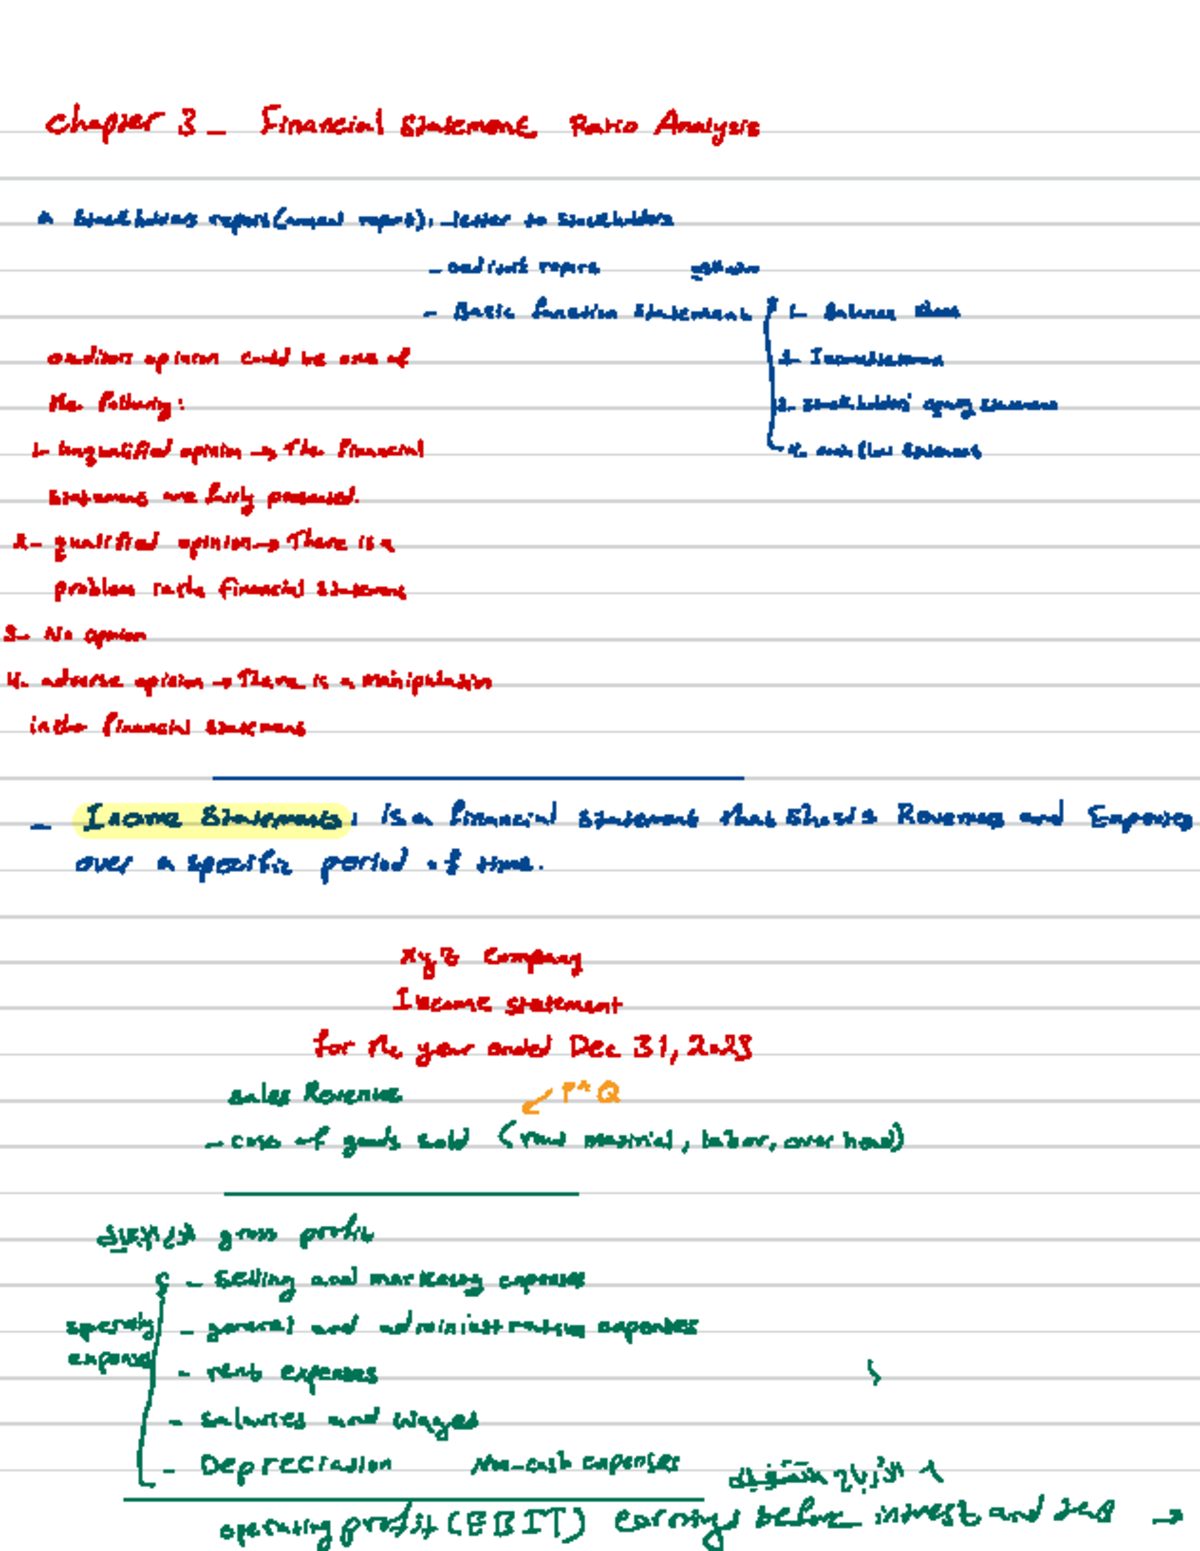 Chapter 3 - Financial Statement Ratio Analysis
Stockholders report (annual report): - letter to stockholders
- auditors report
- Basic Function Statement
1- Balance Sheet
2- Income statement
3- Stockholders' equity statement
4- cash flow statement
auditors opinion could be one of
the following:
1- Unqualified opinion → The Financial
Statement are fairly presented.
2- qualified opinion → There is a
problem in the financial statement
3- No opinion
4- adverse opinion → There is a manipulation
in the financial statement
- Income Statements: is a financial statement that shows Revenues and Expenses
over a specific period of time.
XYZ Company
Income statement
for the year ended Dec 31, 2023
Sales Revenue
P * Q
- cost of goods sold (raw material, labor, over head)
gross profit
- Selling and marketing expenses
operating
expenses
- general and administrative expenses
- rent expenses
- Salaries and wages
- Depreciation Non-cash expenses
operating profit (EBIT) earnings before interest and tax →